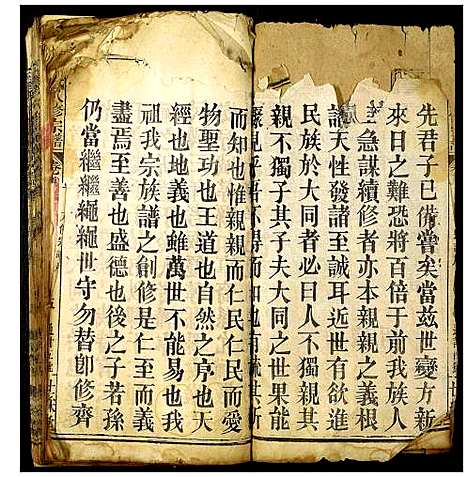 先君子已備嘗矣當茲世變方新
來日之難恐將百倍于前我族人
急謀續修者亦本親親之義根
諸天性發諸至誠耳近世有欲進
民族於大同者必曰人不獨親其
親不獨子其子夫大同之世果能
而知也惟親親而仁民仁民而愛
物聖功也王道也自然之序也天
經也地義也雖萬世不能易也我
祖我宗族譜之創修是仁至而義
盡焉至善也盛德也後之子若孫
仍當繼繼繩繩世守勿替卽修齊